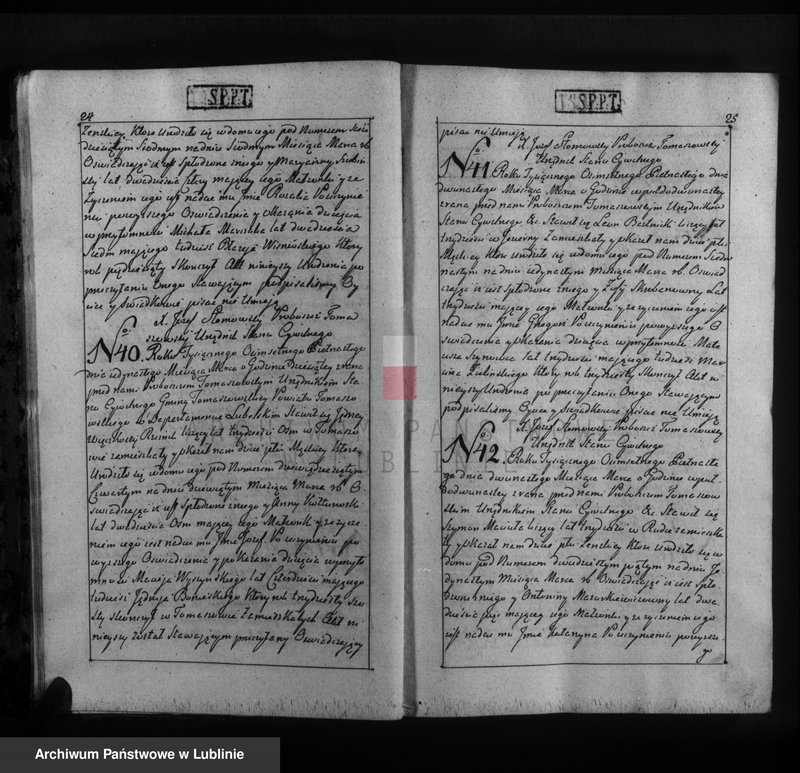 S.P.P.T.
24
Żeńskiey Które Urodziło się wdomu ego pod Numerem
dziesiątym Siodmym nadniu Siodmym Miesiąca Marca rb
Oświadczając iż iest Spłodzone zniego y Maryanny
lat dwadzieścia cztery maiącey iego Małżonki y ze
Życzeniem iego iest nadać mu Jmie Rozalia Po uczynie
niu powyższego Oświadczenia y Okazania dziecięcia
w przytomności Michała lat dwadzieścia
Siedm maiącego tudzież Błażeja Wiśniewskiego Który
rok pędziesiąty Skończył Akt ninieyszy Urodzenia po
przeczytaniu Onego Stawaiącym podpisaliśmy Oy
ciec y Swiadkowie pisać nie Umieią
X. Jozef Słomowski Proboszcz Toma
szowski Urzędnik Stanu Cywilnego
No 40. Roku Tysiącznego Osimsetnego Pietnastego
dnia iedynastego Miesiąca Marca o Godzinie Dziesiątey zrana
przed nami Proboszczem Tomaszowskim Urzędnikiem Sta
nu Cywilnego Gminy Tomaszowskiey Powiatu Tomaszo
wskiego w Departamencie Lubelskim Stawił się Jędrzey
liczący lat trzydzieści Osm w Tomaszo
wie zamieszkały y okazał nam dziecie płci Męskiey Które
Urodziło się wdomu ego pod Numerem dziewiędziesiątym
Czwartym na dniu dziewiątym Miesiąca Marca rb O
świadczając iż iest Spłodzone zniego y Anny
lat dwadzieścia Osm maiącey iego Małżonki y ze życze
niem iego iest nadać mu Jmie Jozef Po uczynieniu po
wyższego Oświadczenia y pokazania dziecięcia w przyto
mności Macieja lat Czterdzieści maiącego
tudzież Jędrzeja Który rok trzydziesty Szo
sty skończył w Tomaszowie Zamieszkałych Akt ni
nieyszy został Stawaiącym przeczytany Oświadczaiący
S.P.P.T.
25
pisać nie Umieią
X. Jozef Słomowski Proboszcz Tomaszowski
Urzędnik Stanu Cywilnego
No 41. Roku Tysiącznego Osimsetnego Pietnastego dnia
dwunastego Miesiąca Marca o Godzinie wpół do dwunastey
zrana przed nami Proboszczem Tomaszowskim Urzędnikiem
Stanu Cywilnego &c. Stawił się Leon liczący lat
trzydzieści w Zamieszkały y okazał nam dziecie płci
Męskiey Które Urodziło się wdomu ego pod Numerem
nastym nadniu iedynastym Miesiąca Marca rb Oświad
czając iż iest Spłodzone zniego y Zofij lat
trzydzieści maiącey iego Małżonki y ze życzeniem iego iest
nadać mu Jmie Grzegorz Po uczynieniu powyższego O
świadczenia y okazania dziecięcia w przytomności Mate
usza lat trzydzieści maiącego tudzież Mar
cina Który rok trzydziesty Skończył Akt ni
nieyszy Urodzenia po przeczytaniu Onego Stawaiącym
podpisaliśmy Oyciec y Swiadkowie pisać nie Umieią
X. Jozef Słomowski Proboszcz Tomaszowski
Urzędnik Stanu Cywilnego
No 42. Roku Tysiącznego Osimsetnego Pietnaste
go dnia dwunastego Miesiąca Marca o Godzinie wpół
Dodwunastey zrana przed nami Proboszczem Tomaszow
skim Urzędnikiem Stanu Cywilnego &c. Stawił się
Szymon liczący lat trzydzieści w Rudzie zamieszka
ły y okazał nam dziecie płci Żeńskiey Które Urodziło się w
domu pod Numerem dwudziestym piątym nadniu Je
dynastym Miesiąca Marca rb Oświadczając iż iest Spło
dzone zniego y Antoniny lat dwa
dzieścia pięć maiącey iego Małżonki y ze życzeniem iego
iest nadać mu Jmie Katarzyna Po uczynieniu powyższe
go
Archiwum Państwowe w Lublinie